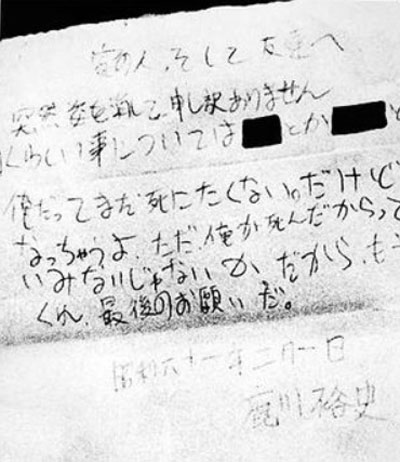 家の人、そして友達へ
突然姿を消して、申し訳ありません
くわしい事については とか と
俺だってまだ死にたくない。だけど
なっちゃうよ、ただ、俺が死んだからって
いみないじゃないか、だから、も
くれ、最後のお願いだ。
昭和六十一年二月一日
鹿川裕史